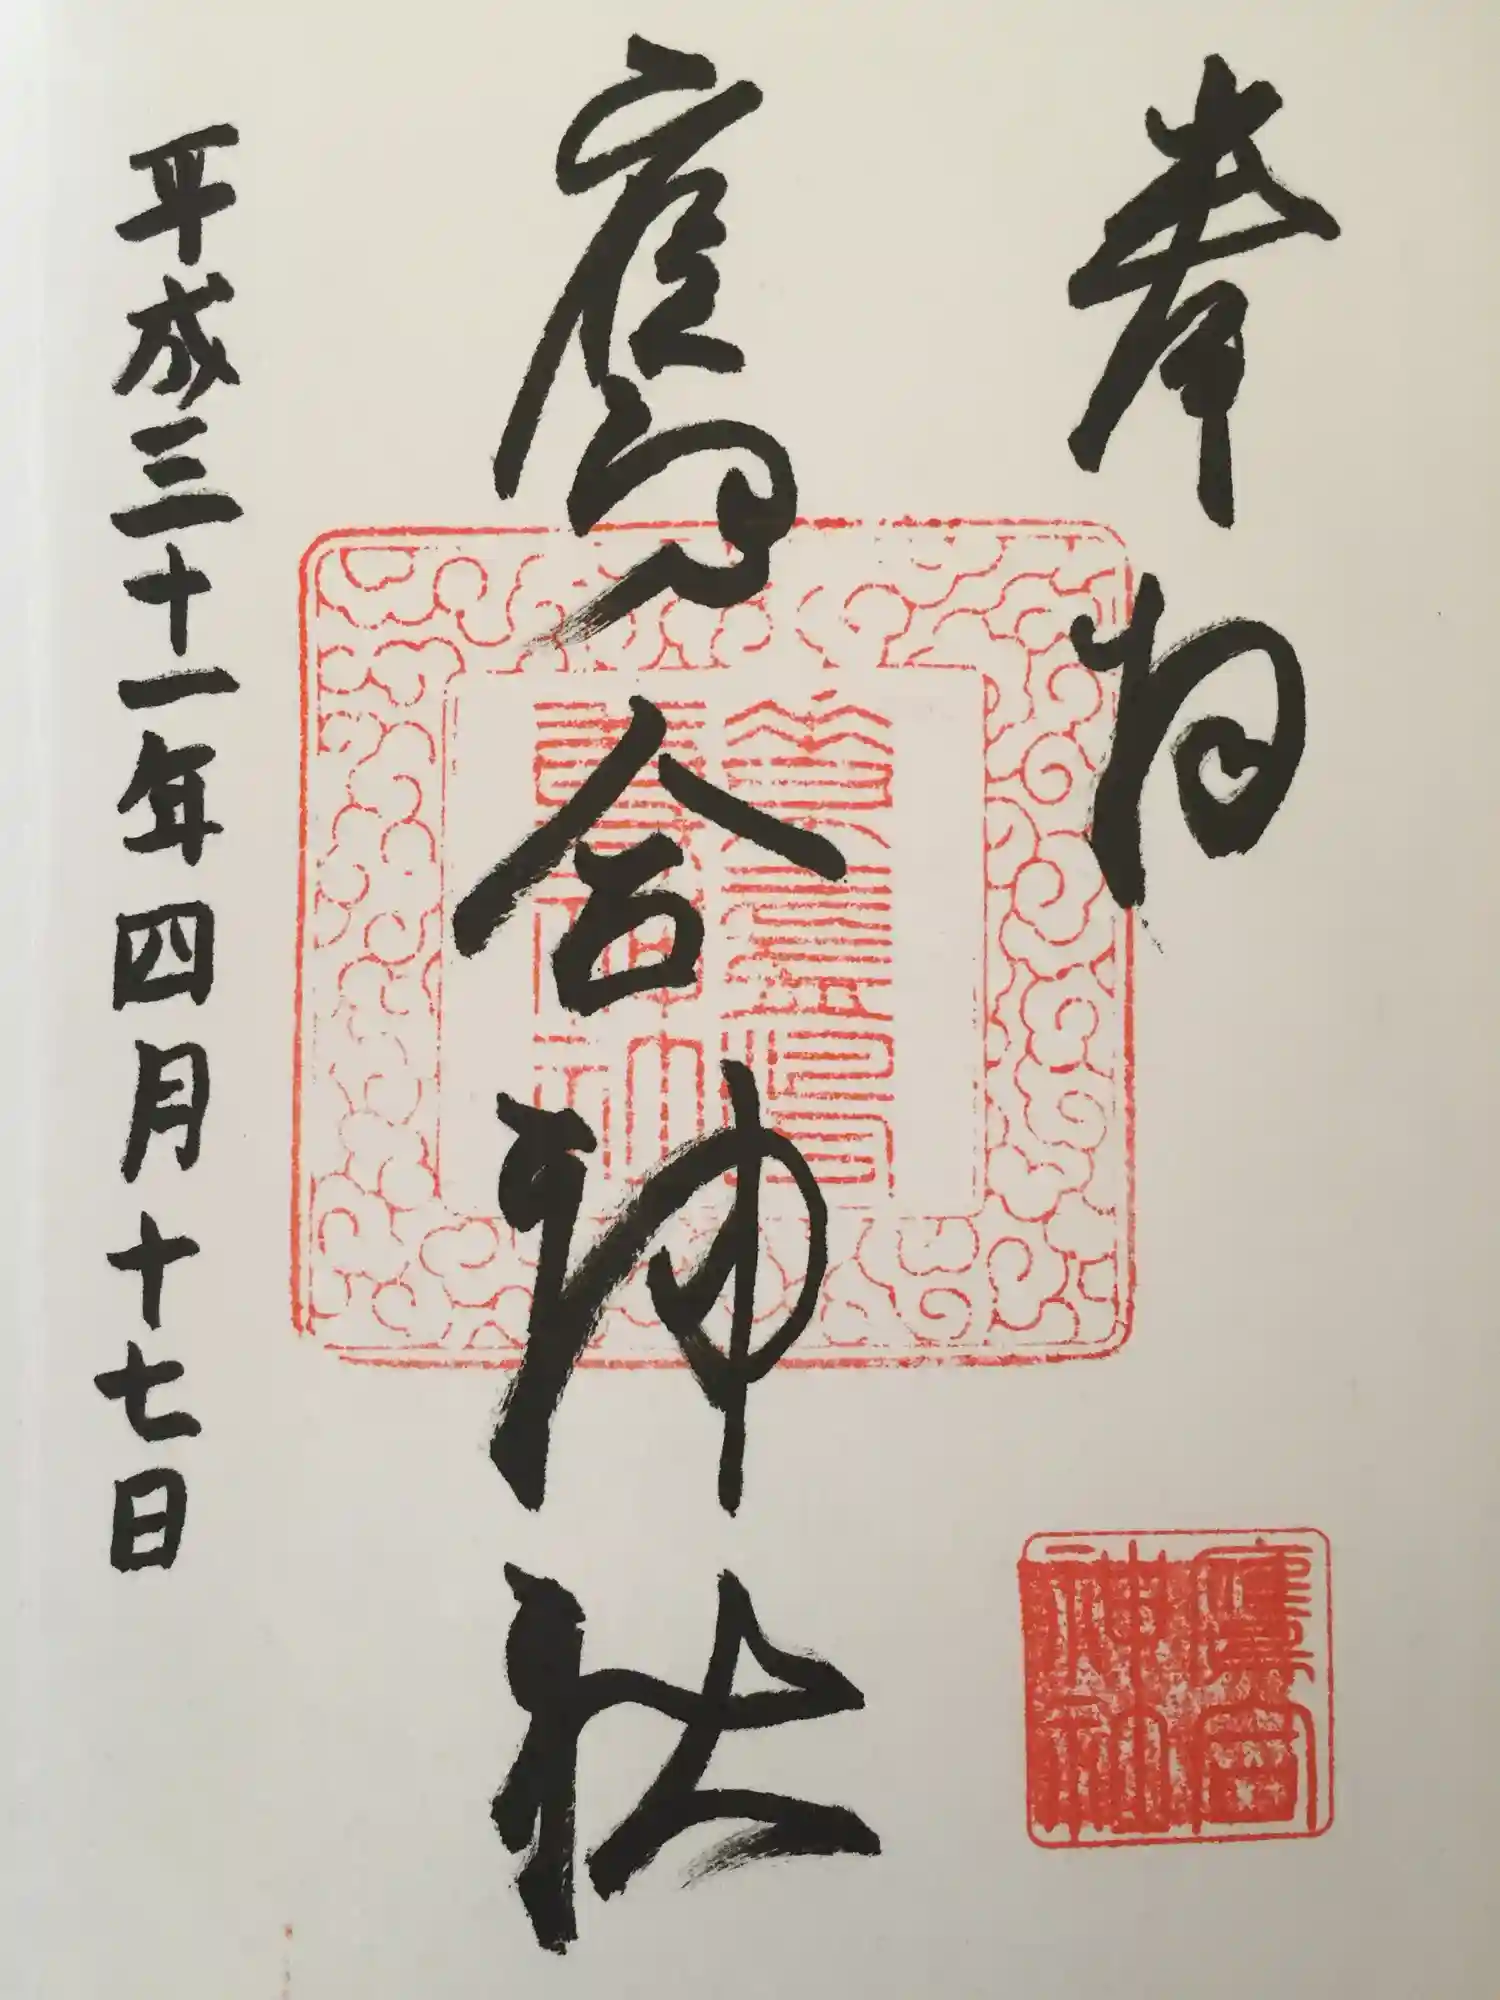 奉拝
鷹合神社
平成三十一年四月十七日
鷹合
神社